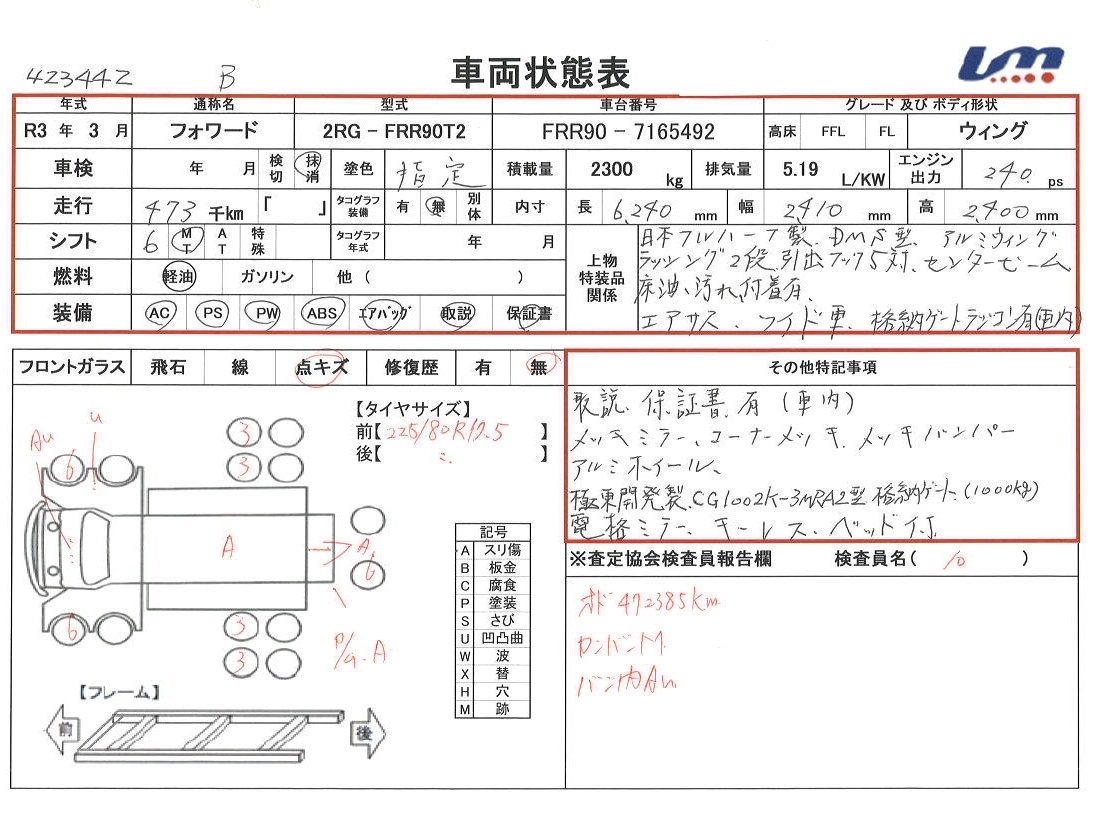 423442 B 車両状態表
年式 通称名 型式 車台番号 グレード 及び ボディ形状
R3 年 3 月 フォワード 2RG - FRR90T2 FRR90 - 7165492 高床 FFL FL ウィング
車検 年 月 検切 抹消 塗色 指定 積載量 2300 kg 排気量 5.19 L/KW エンジン出力 240 ps
走行 473 千km 「 」 タコグラフ装備 有 無 別体 内寸 長 6,240 mm 幅 2,410 mm 高 2,400 mm
シフト 6 MT AT 特殊 タコグラフ年式 年 月
上物特装品関係
日本フルハーフ製、DMS型、アルミウィング
ラッシング2段、引出フック5対、センタービーム、
床油、汚れ付着有、
エアサス、ワイド車、格納ゲートラジコン有(車内)
燃料 軽油 ガソリン 他 ( )
装備 AC PS PW ABS エアバッグ 取説 保証書
フロントガラス 飛石 線 点キズ 修復歴 有 無
その他特記事項
取説、保証書、有(車内)
メッキミラー、コーナーメッキ、メッキバンパー
アルミホイール、
極東開発製、CG1002K-3MRA2型 格納ゲート、(1000kg)
電格ミラー、キーレス、ベッド付
【タイヤサイズ】
前【225/80R17.5 】
後【 】
Au u
6 3
3
A A
6
6 3
3
P/G.A
記号
A スリ傷
B 板金
C 腐食
P 塗装
S さび
U 凹凸曲
W 波
X 替
H 穴
M 跡
【フレーム】
前 後
※査定協会検査員報告欄 検査員名( 10 )
オド 472385km
カンバンM
バン内Au